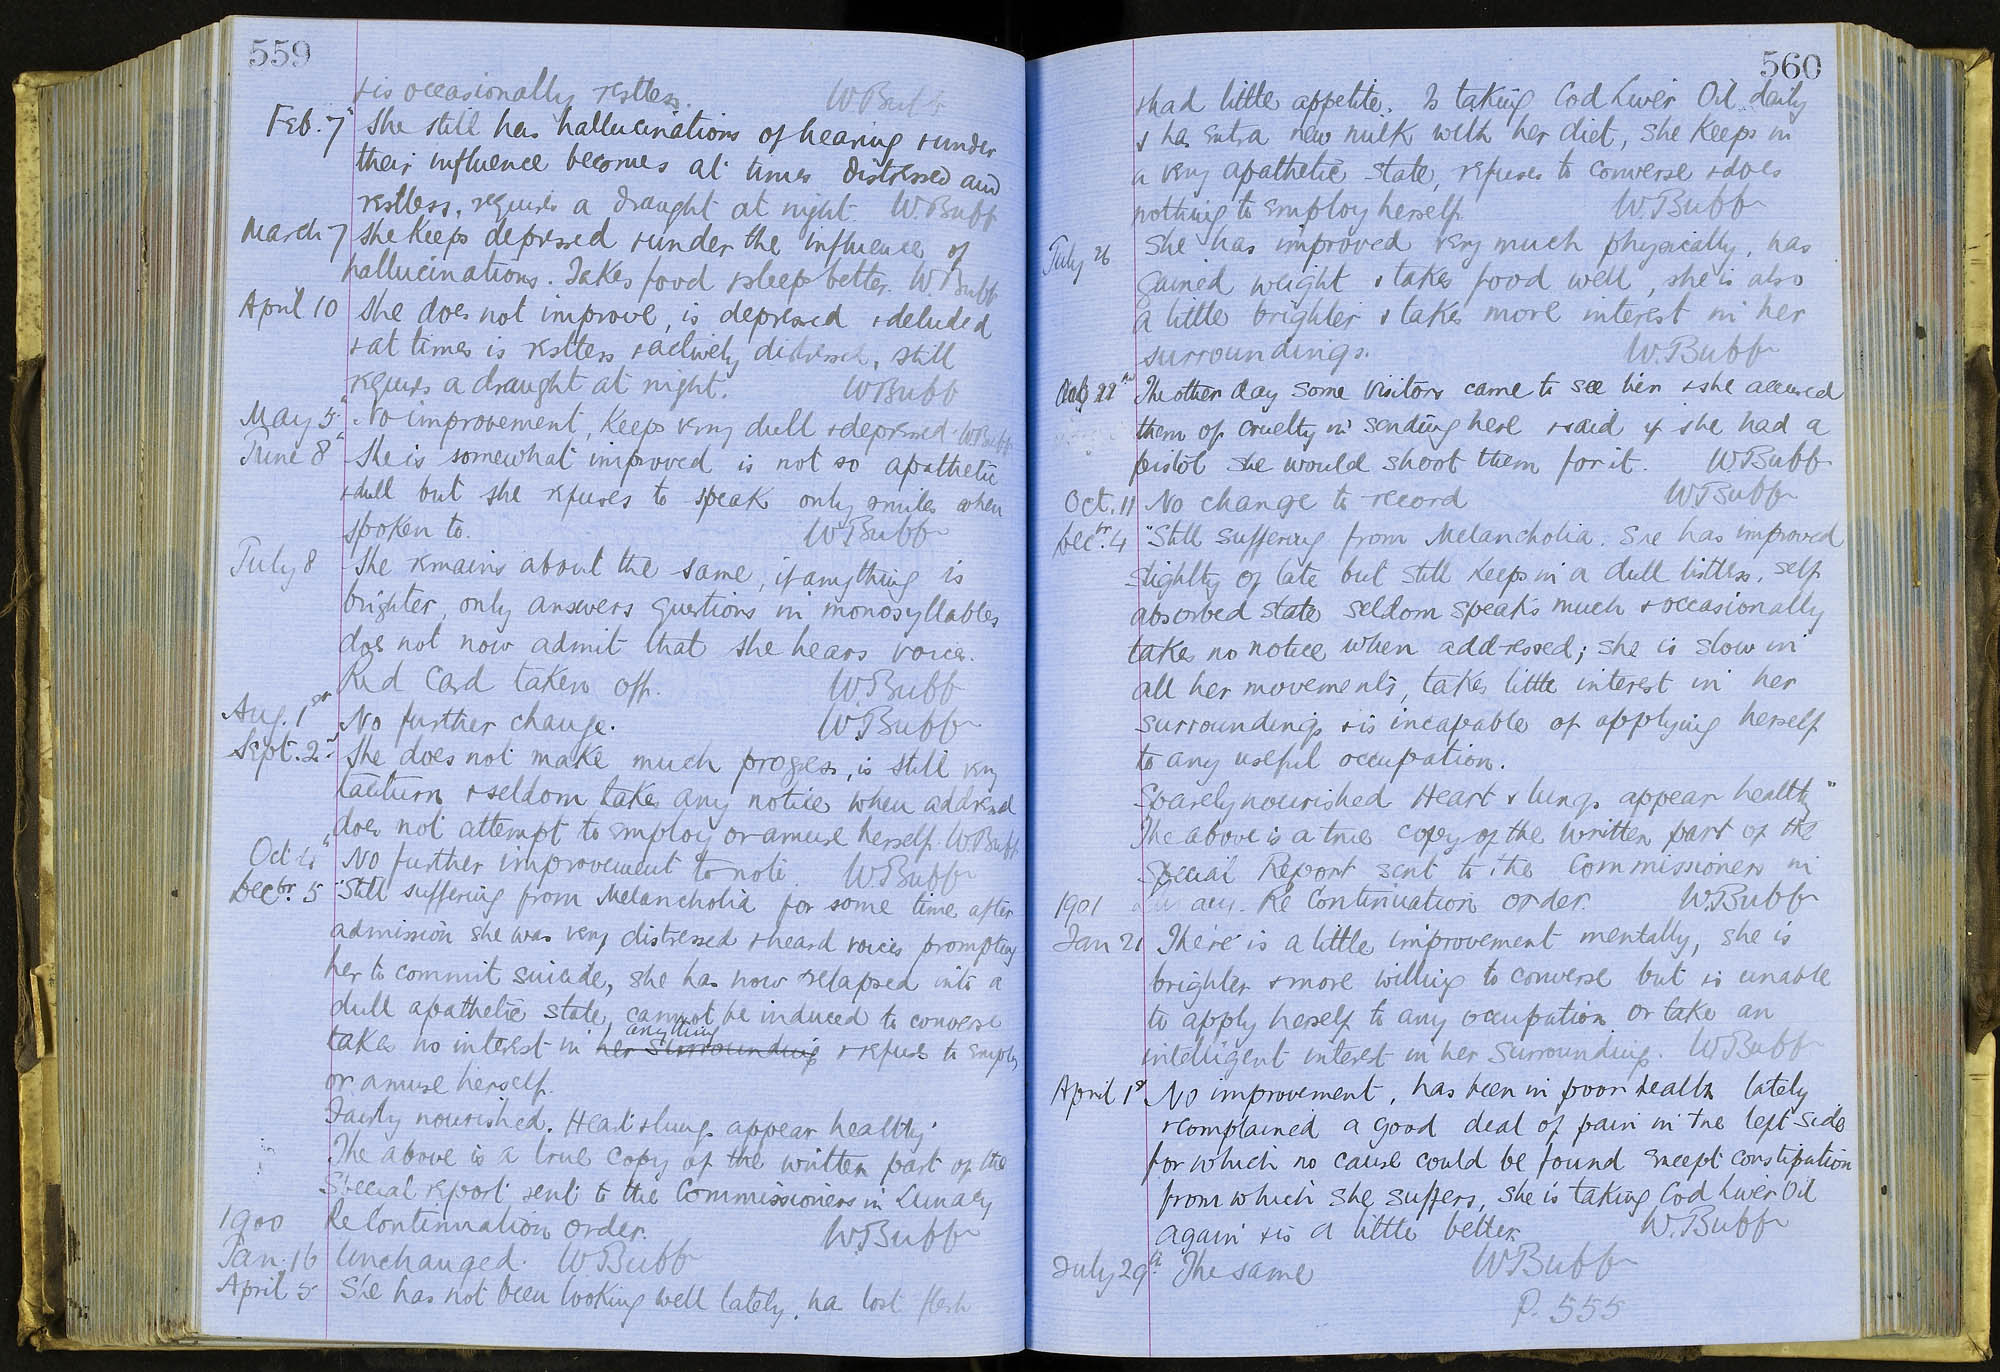 559
& is occasionally restless. W. Bubb
Feb. 7 She still has hallucinations of hearing & under
their influence becomes at times distressed and
restless, requires a draught at night W. Bubb
March 7 She keeps depressed & under the influence of
hallucinations. Takes food & sleeps better. W. Bubb
April 10 She does not improve, is depressed & deluded
& at times is restless & actively distressed, still
requires a draught at night. W Bubb
May 5th No improvement, keeps very dull & depressed. W Bubb
June 8th She is somewhat improved is not so apathetic
& dull but she refuses to speak only smiles when
spoken to. W. Bubb
July 8 She remains about the same, if anything is
brighter, only answers questions in monosyllables
does not now admit that she hears voices.
Red Card taken off. W. Bubb
Aug. 1st No further change. W. Bubb
Sept. 2nd She does not make much progress, is still very
taciturn & seldom takes any notice when addressed
does not attempt to employ or amuse herself. W. Bubb
Oct 4th No further improvement to note. W. Bubb
Decbr. 5 "Still suffering from Melancholia for some time after
admission she was very distressed & heard voices prompting
her to commit suicide, she has now relapsed into a
dull apathetic state, cannot be induced to converse
anything
takes no interest in her surroundings & refuses to employ
or amuse herself.
Fairly nourished. Heart & lungs appear healthy"
The above is a true copy of the written part of the
Special report sent to the Commissioners in Lunacy
1900 Re Continuation order. W. Bubb
Jan. 16 Unchanged. W Bubb
April 5 She has not been looking well lately, has lost flesh
560
& had little appetite. Is taking Cod Liver Oil daily
& has extra new milk with her diet, she keeps in
a very apathetic state, refuses to converse & does
nothing to employ herself. W. Bubb
July 26 She has improved very much physically, has
gained weight & takes food well, she is also
a little brighter & takes more interest in her
surroundings. W. Bubb
22nd The other day some visitors came to see her & she accused
them of cruelty in sending here & said if she had a
pistol she would shoot them for it. W Bubb
Oct. 11 No change to record W. Bubb
Decbr. 4 "Still suffering from Melancholia. She has improved
slightly of late but still keeps in a dull listless, self
absorbed state seldom speaks much & occasionally
takes no notice when addressed; she is slow in
all her movements, takes little interest in her
surroundings & is incapable of applying herself
to any useful occupation.
Sparely nourished Heart & lungs appear healthy"
The above is a true copy of the written part of the
Special Report sent to the Commissioners in
1901 Lunacy. Re Continuation order. W. Bubb
Jan 21 There is a little improvement mentally, she is
brighter & more willing to converse but is unable
to apply herself to any occupation or take an
intelligent interest in her surroundings. W Bubb
April 1st No improvement, has been in poor health lately
& complained a good deal of pain in the left side
for which no cause could be found except constipation
from which she suffers, she is taking Cod Liver Oil
again & is a little better. W. Bubb
July 29th The same W Bubb
P. 555